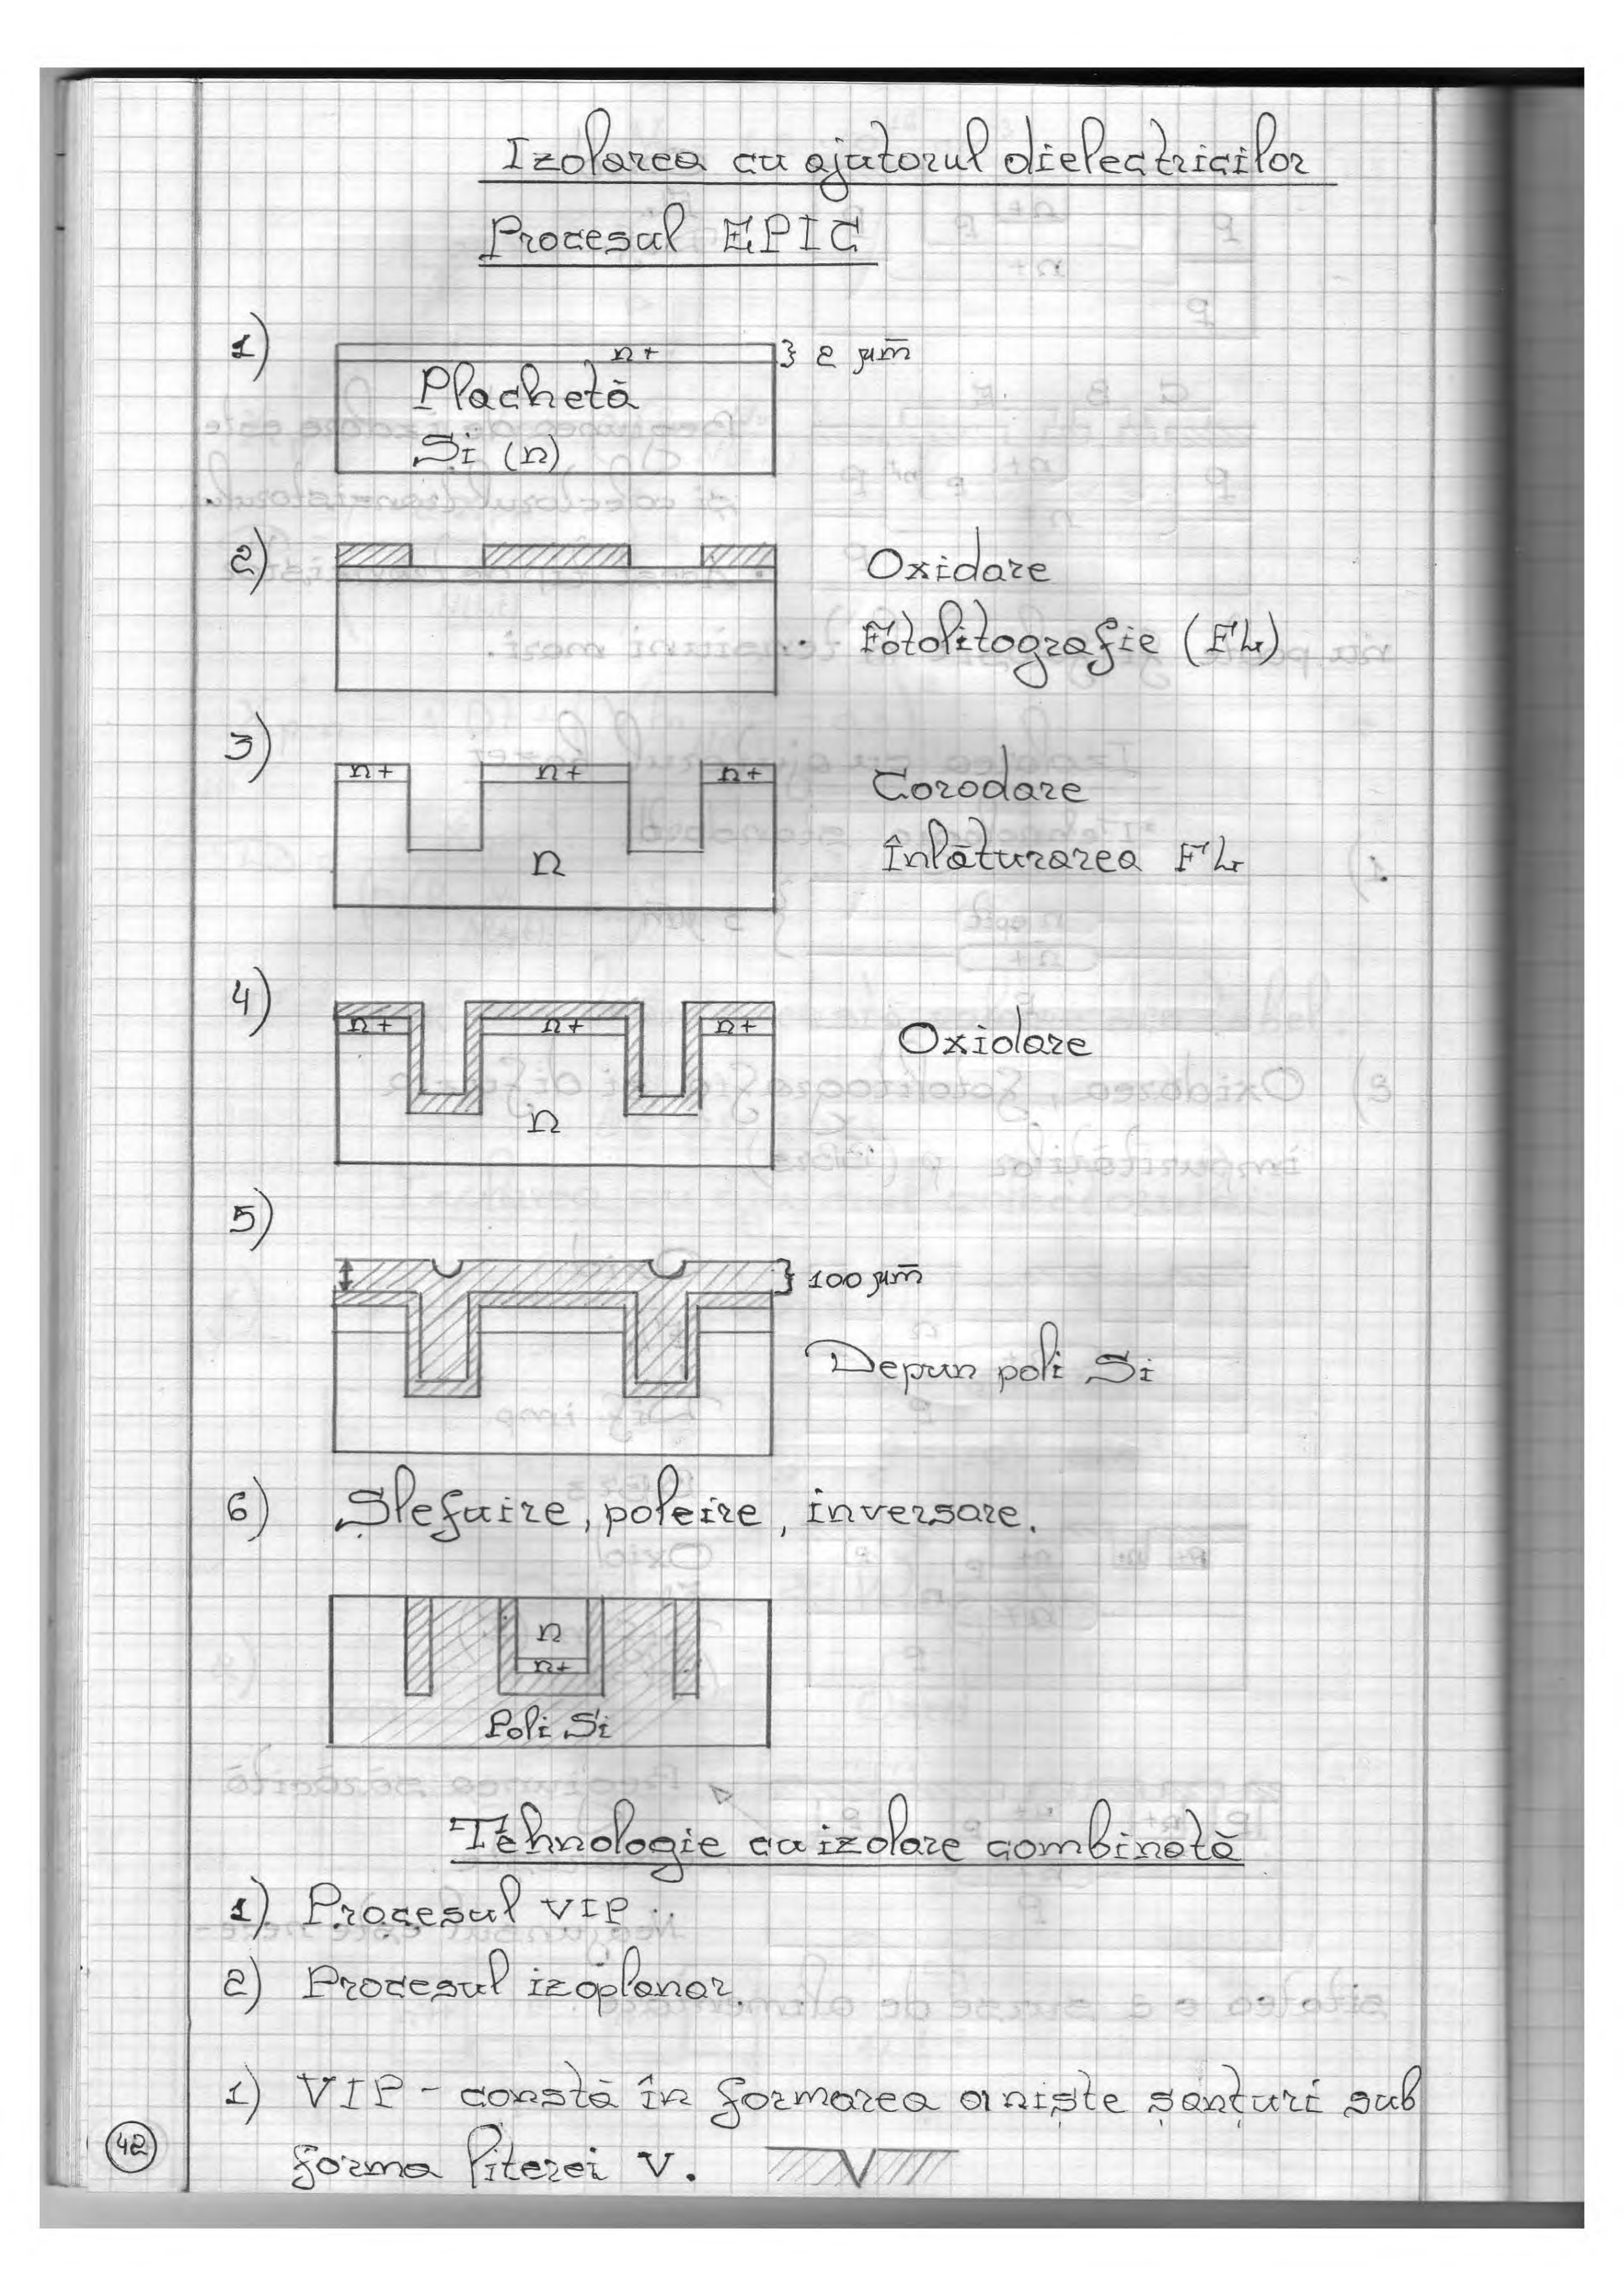 Izolarea cu ajutorul dielectricilor
Procesul EPIC
1)
n+
} 2 μm
Plachetă
Si (n)
2)
Oxidare
Fotolitografie (FL)
3)
n+ n+ n+
Corodare
Înlăturarea FL
n
4)
n+ n+ n+
Oxidare
n
5)
} 100 μm
Depun poli Si
6) Șlefuire, poleire, inversare.
n
n+
Poli Si
Tehnologie cu izolare combinată
1) Procesul VIP
2) Procesul izoplanar.
1) VIP - constă în formarea a niște șanțuri sub
forma literei V.
42